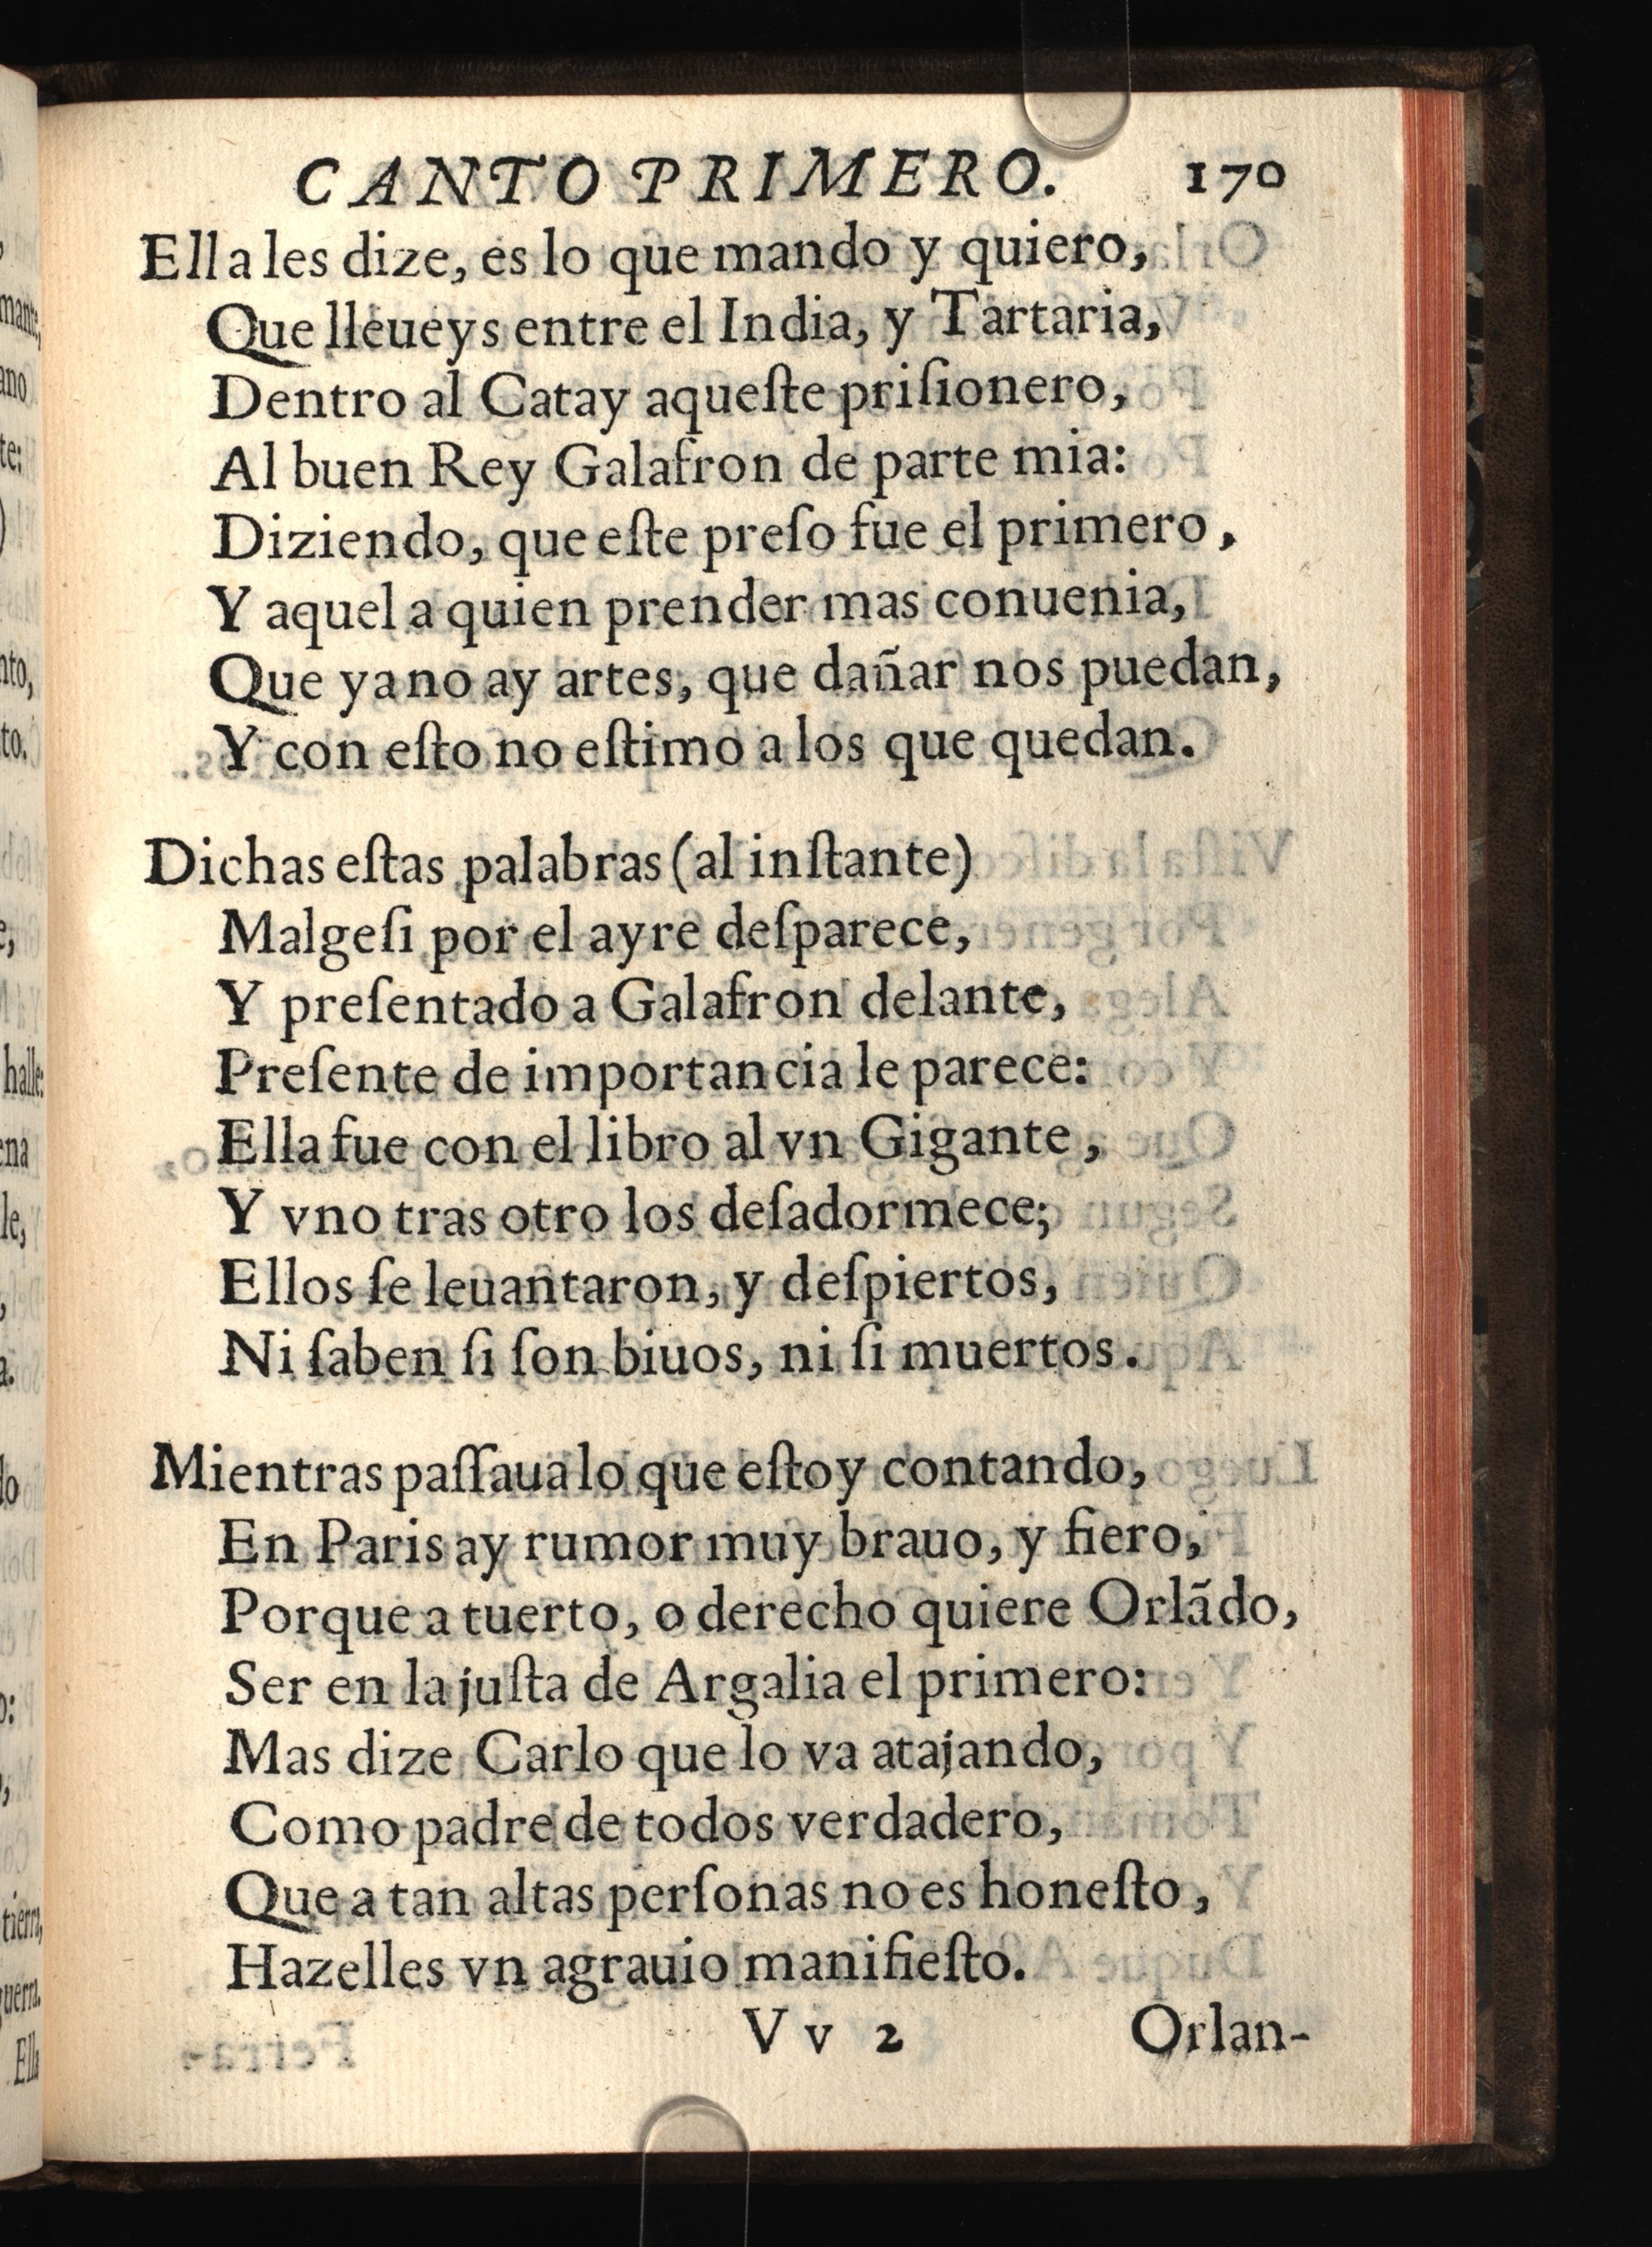 CANTO PRIMERO. 170
Ella les dize, es lo que mando y quiero,
Que lleueys entre el India, y Tartaria,
Dentro al Catay aqueſte priſionero,
Al buen Rey Galafron de parte mia:
Diziendo, que eſte preſo fue el primero,
Y aquel a quien prender mas conuenia,
Que ya no ay artes, que dañar nos puedan,
Y con eſto no eſtimo a los que quedan.
Dichas eſtas palabras (al inſtante)
Malgeſi por el ayre deſparece,
Y preſentado a Galafron delante,
Preſente de importancia le parece:
Ella fue con el libro al vn Gigante,
Y vno tras otro los deſadormece;
Ellos ſe leuantaron, y deſpiertos,
Ni ſaben ſi ſon biuos, ni ſi muertos.
Mientras paſſaua lo que eſtoy contando,
En Paris ay rumor muy brauo, y fiero,
Porque a tuerto, o derecho quiere Orlãdo,
Ser en la juſta de Argalia el primero:
Mas dize Carlo que lo va atajando,
Como padre de todos verdadero,
Que a tan altas perſonas no es honeſto,
Hazelles vn agrauio manifieſto.
Vv 2 Orlan-